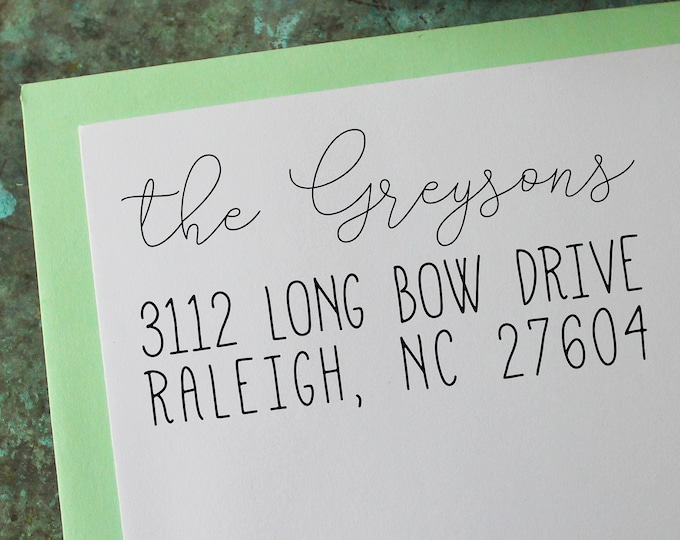 the Greysons
3112 LONG BOW DRIVE
RALEIGH, NC 27604